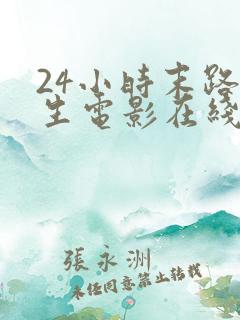 24小時末路
生電影在綫
張永洲
未经同意禁止转载